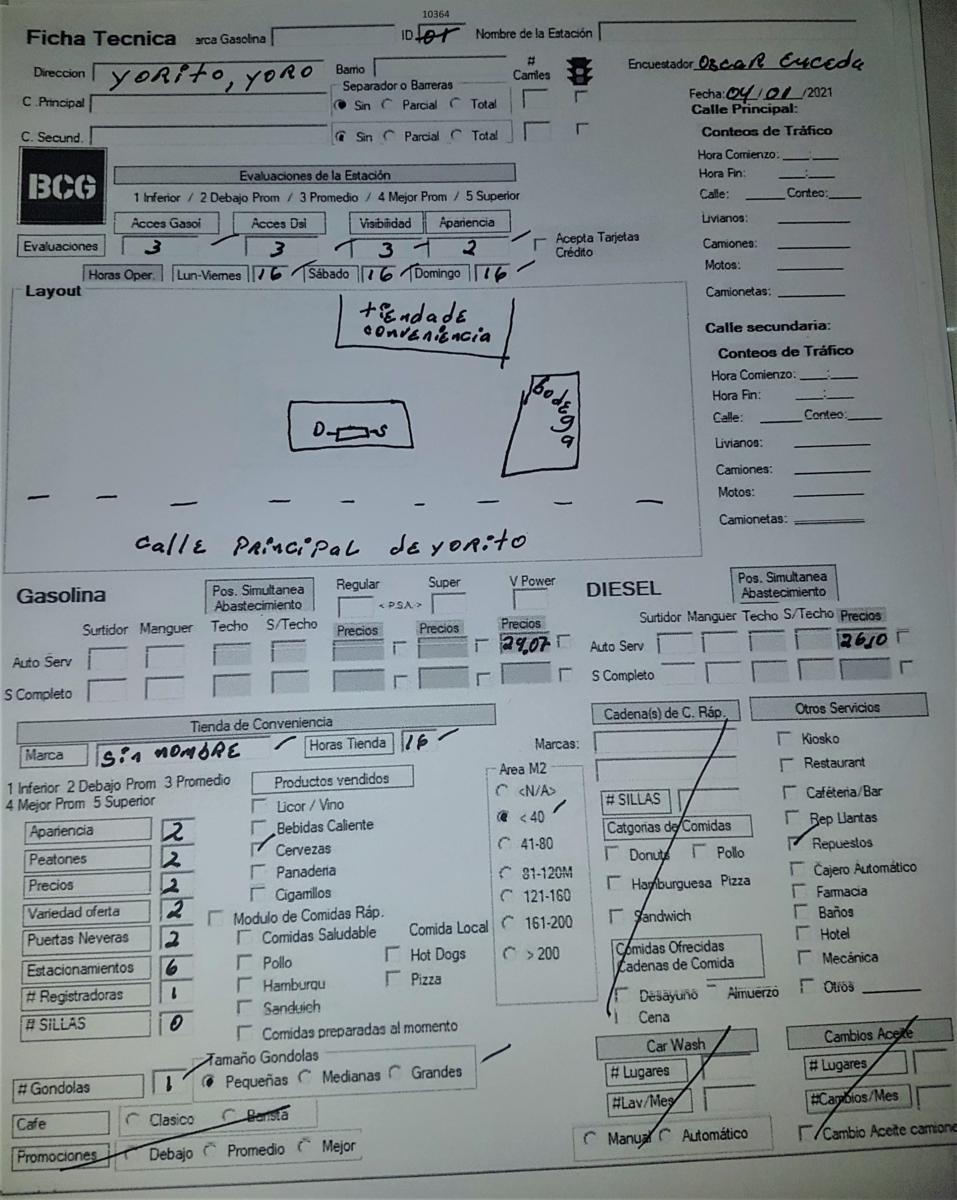 10364
Ficha Tecnica arca Gasolina ID 101 Nombre de la Estación
Direccion YORITO, YORO Barrio # Carriles Encuestador OSCAR Euceda
Separador o Barreras Fecha: 04/01/2021
C .Principal Sin Parcial Total Calle Principal:
C. Secund. Sin Parcial Total Conteos de Tráfico
Hora Comienzo: ____:____
BCG Evaluaciones de la Estación Hora Fin: ____:____
1 Inferior / 2 Debajo Prom / 3 Promedio / 4 Mejor Prom / 5 Superior Calle: Conteo:
Acces Gasol Acces Dsl Visibilidad Apariencia Livianos:
Evaluaciones 3 3 3 2 Acepta Tarjetas Crédito Camiones:
Horas Oper. Lun-Viernes 16 Sábado 16 Domingo 16 Motos:
Layout Camionetas:
tiENDA dE
conVENiENCiA
Calle secundaria:
Conteos de Tráfico
Hora Comienzo: ____:____
BodEga Hora Fin: ____:____
D S Calle: Conteo:
Livianos:
Camiones:
Motos:
Camionetas:
CallE PRincipal dE YORITO
Gasolina Pos. Simultanea Abastecimiento Regular < P.S.A. > Super V Power DIESEL Pos. Simultanea Abastecimiento
Surtidor Manguer Techo S/Techo Precios Precios Precios Surtidor Manguer Techo S/Techo Precios
Auto Serv 29,07 Auto Serv 26,10
S Completo S Completo
Tienda de Conveniencia Cadena(s) de C. Ráp. Otros Servicios
Marca Sin NOMBRE Horas Tienda 16 Marcas: Kiosko
1 Inferior 2 Debajo Prom 3 Promedio Productos vendidos Area M2 Restaurant
4 Mejor Prom 5 Superior Licor / Vino <N/A> # SILLAS Caféteria/Bar
Apariencia 2 Bebidas Caliente < 40 Catgorias de Comidas Rep Llantas
Peatones 2 Cervezas 41-80 Donuts Pollo Repuestos
Precios 2 Panaderia 81-120M Hamburguesa Pizza Cajero Automático
Variedad oferta 2 Cigarrillos 121-160 Sandwich Farmacia
Puertas Neveras 2 Modulo de Comidas Ráp. 161-200 Baños
Estacionamientos 6 Comidas Saludable Comida Local > 200 Comidas Ofrecidas Hotel
# Registradoras 1 Pollo Hot Dogs Cadenas de Comida Mecánica
# SILLAS 0 Hamburgu Pizza Desayuno Almuerzo Otros
Sanduich Cena
Comidas preparadas al momento
Tamaño Gondolas Car Wash Cambios Aceite
# Gondolas 1 Pequeñas Medianas Grandes # Lugares # Lugares
Cafe Clasico Barista #Lav/Mes #Cambios/Mes
Promociones Debajo Promedio Mejor Manual Automático Cambio Aceite camione